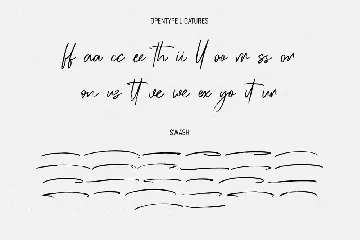 OPENTYPE LIGATURES
ff aa cc ee th ii ll oo rr ss or
on us tt ve we ex yo it ur
SWASH